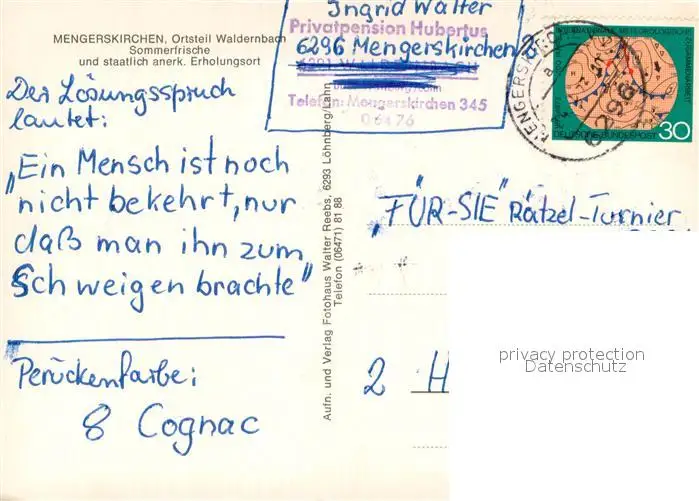 MENGERSKIRCHEN, Ortsteil Waldernbach
Sommerfrische
und staatlich anerk. Erholungsort
Der Lösungsspruch
lautet:
„Ein Mensch ist noch
nicht bekehrt, nur
daß man ihn zum
Schweigen brachte"
Perückenfarbe:
8 Cognac
Aufn. und Verlag Fotohaus Walter Reebs, 6293 Löhnberg/Lahn
Telefon (06471) 81 88
Ingrid Walter
Privatpension Hubertus
6296 Mengerskirchen 2
Telefon: Mengerskirchen 345
06476
MENGERSKIRCHEN
6296
DEUTSCHE BUNDESPOST 30
„FÜR-SIE" Rätzel-Turnier
2 H
privacy protection
Datenschutz